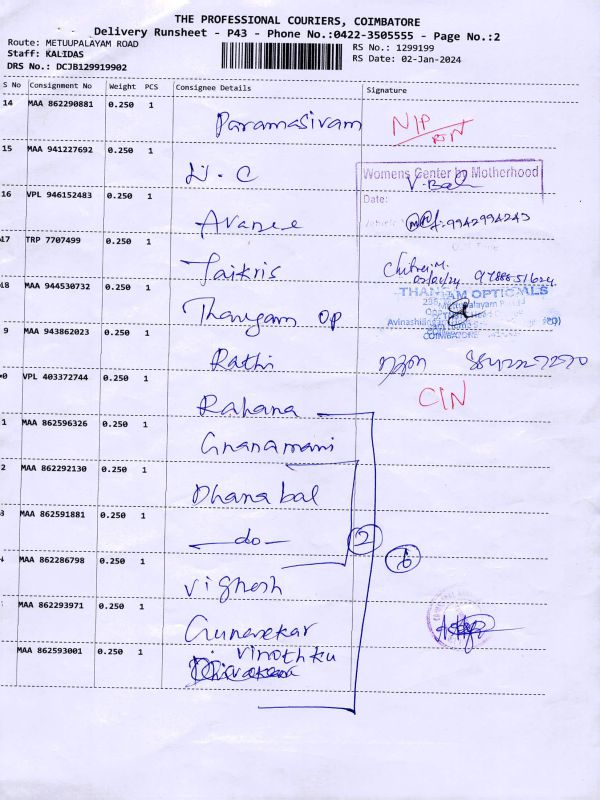 THE PROFESSIONAL COURIERS, COIMBATORE
Delivery Runsheet - P43 - Phone No.:0422-3505555 - Page No.:2
Route: METUUPALAYAM ROAD
RS No.: 1299199
Staff: KALIDAS
RS Date: 02-Jan-2024
DRS No.: DCJB129919902
S No Consignment No Weight PCS Consignee Details Signature
14 MAA 862290881 0.250 1
Paramasivam NIP
15 MAA 941227692 0.250 1
W.C Womens Center by Motherhood
V.Bal
Date:
16 VPL 946152483 0.250 1
Avanee 9942994243
17 TRP 7707499 0.250 1
Jaikris Chitra.M.
02/01/24
18 MAA 944530732 0.250 1
Thangam op THANGAM OPTICALS
COIMBATORE
9 MAA 943862023 0.250 1
Rathi
0 VPL 403372744 0.250 1
Rahana CIN
1 MAA 862596326 0.250 1
Gnanamani
2 MAA 862292130 0.250 1
Dhanabal
3 MAA 862591881 0.250 1
-do- 2 6
4 MAA 862286798 0.250 1
Vighesh
MAA 862293971 0.250 1
Gunasekar
MAA 862593001 0.250 1
Vinothku